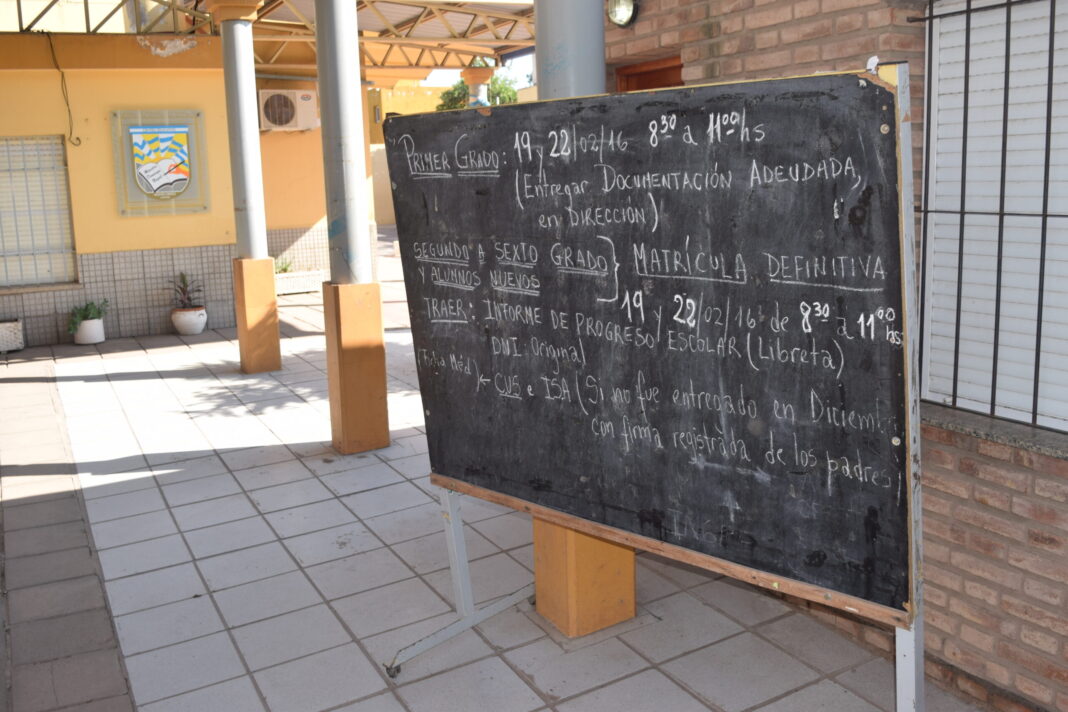 PRIMER GRADO: 19 y 22/02/16 8³⁰ a 11⁰⁰hs
(Entregar DOCUMENTACIÓN ADEUDADA,
en DIRECCIÓN)
SEGUNDO A SEXTO GRADO } MATRÍCULA DEFINITIVA
Y ALUMNOS NUEVOS
19 y 22/02/16 de 8³⁰ a 11⁰⁰ hs
TRAER: INFORME DE PROGRESO ESCOLAR (Libreta)
DNI Original
(Ficha Méd) ← CUS e ISA (Si no fue entregado en Diciembre
con firma registrada de los padres)